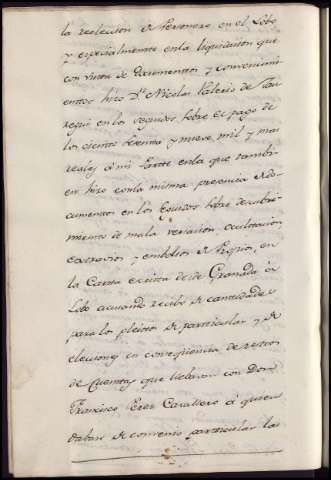 la reeleccion de Personero en el Lobo
y especialmente en la liquidacion que
con vista de Documentos y convenimi
entos hizo Dn. Nicolas Valerio de
regui en los seguidos sobre el pago de
los ciento setenta y nueve mil y mas
reales á mi Parte en la que tambi
en hizo con la misma presencia de do
cumentos en los seguidos sobre descubri
miento de mala versacion ocultacion
extravios y embolsos de Propios, en
la Carta escrita desde Granada á
Lobo acusando recibo de cantidades
para los pleitos de particular y de
elecciones en consequencia de restos
de Cuentas que llebaron con Don
Francisco Perez Cavallero á quien
daban de convenio particular las